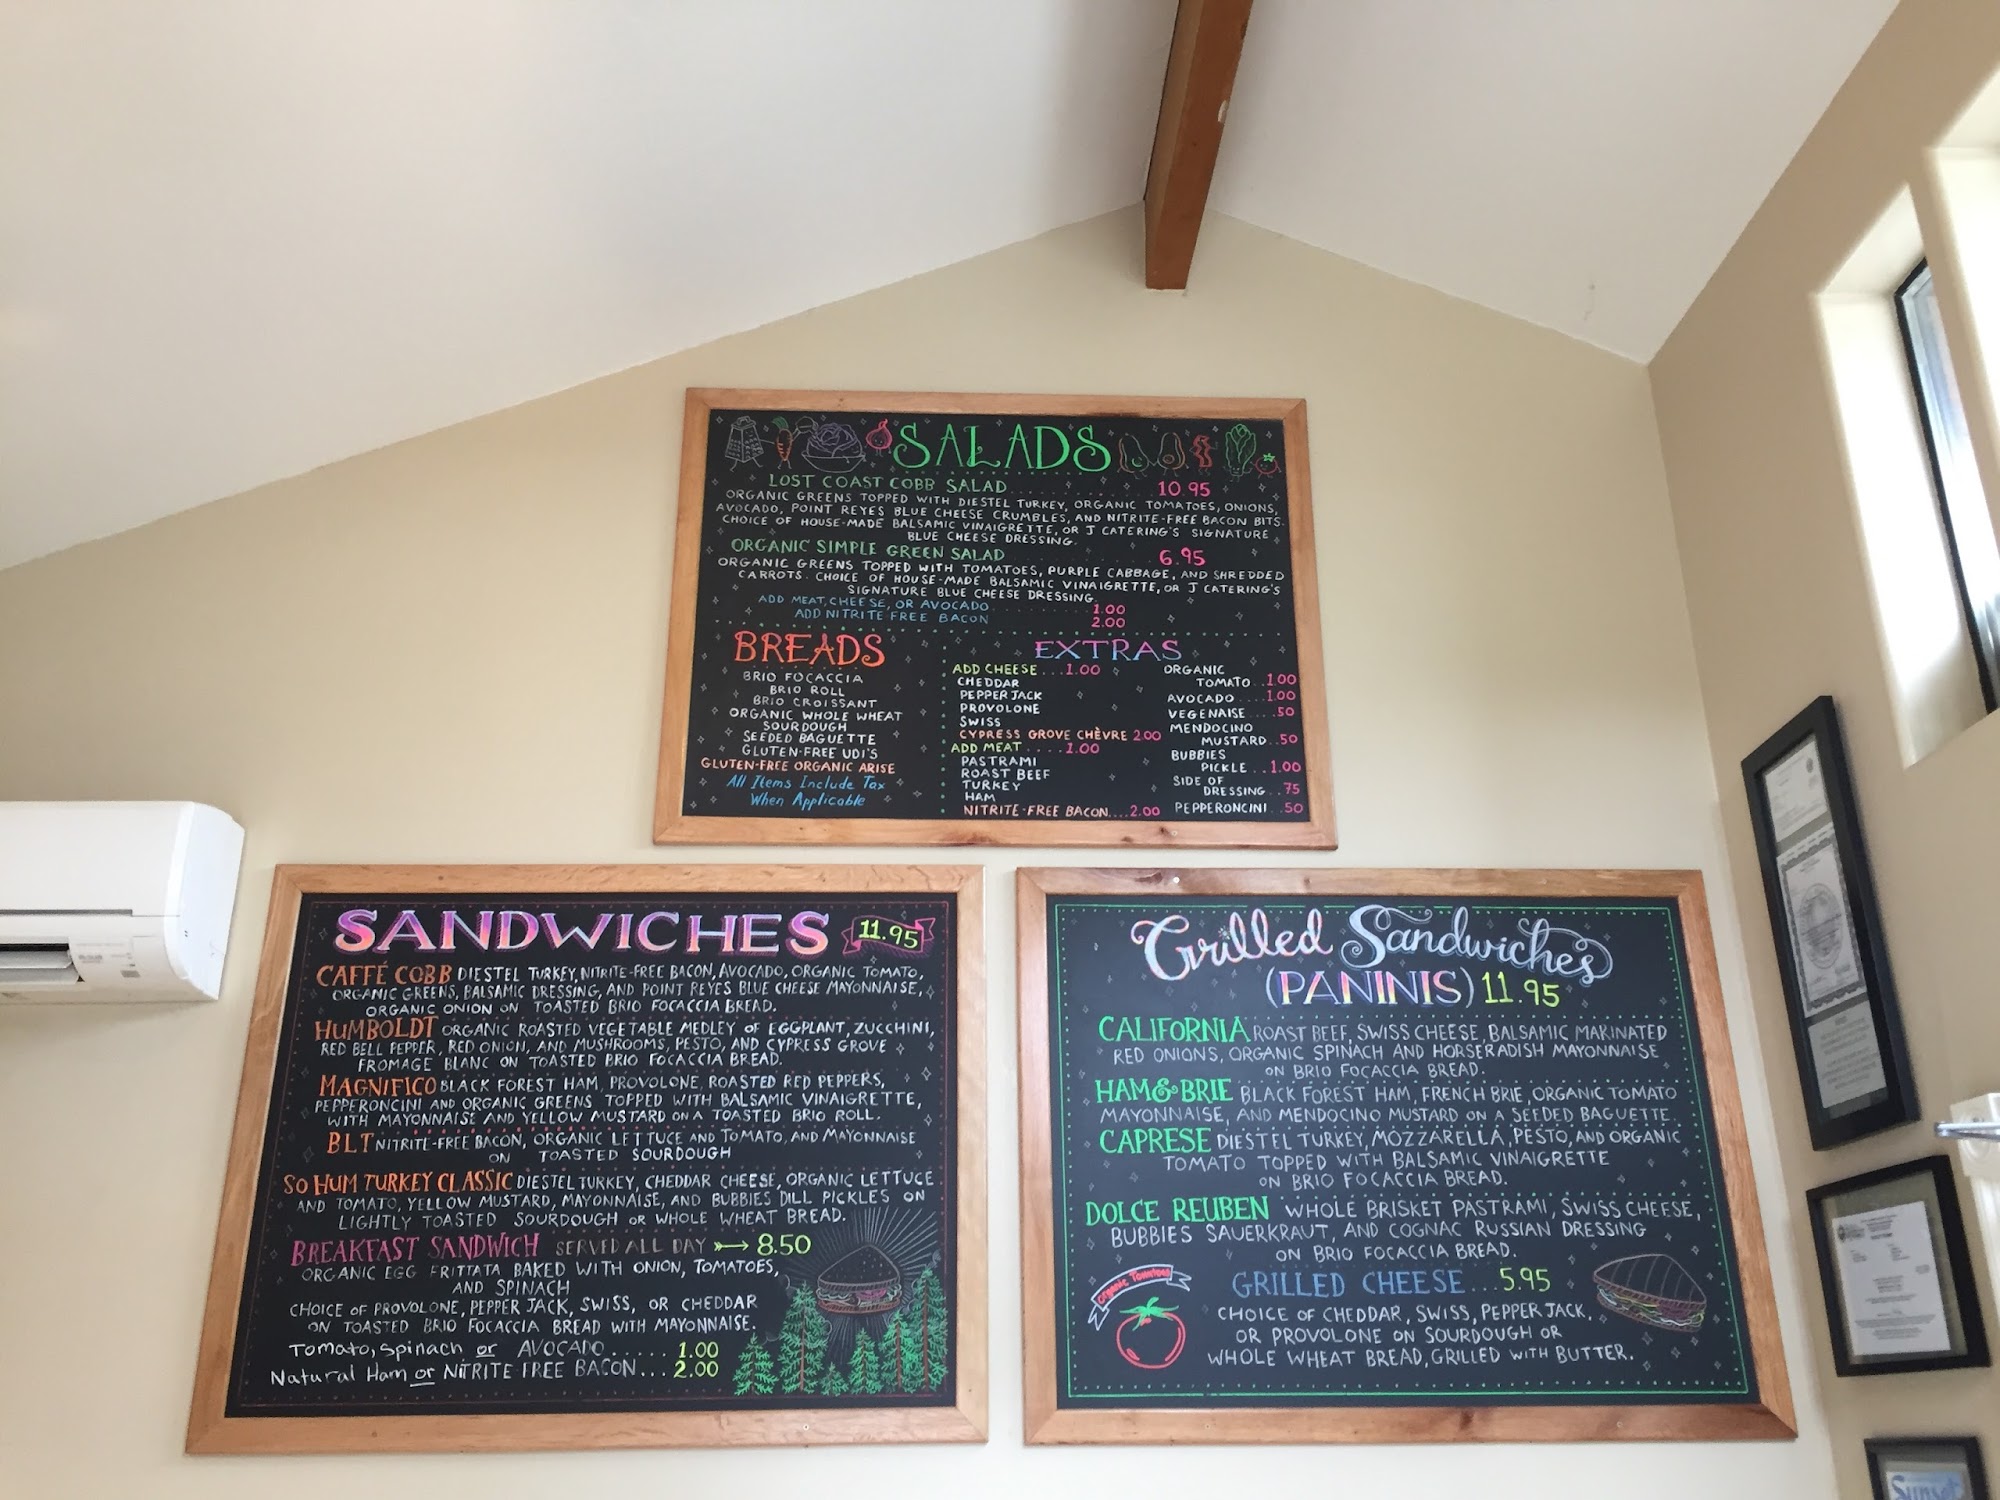 SALADS
LOST COAST COBB SALAD.......... 10.95
ORGANIC GREENS TOPPED WITH DIESTEL TURKEY, ORGANIC TOMATOES, ONIONS,
AVOCADO, POINT REYES BLUE CHEESE CRUMBLES, AND NITRITE-FREE BACON BITS.
CHOICE OF HOUSE-MADE BALSAMIC VINAIGRETTE, OR J CATERING'S SIGNATURE
BLUE CHEESE DRESSING.
ORGANIC SIMPLE GREEN SALAD.......... 6.95
ORGANIC GREENS TOPPED WITH TOMATOES, PURPLE CABBAGE, AND SHREDDED
CARROTS. CHOICE OF HOUSE-MADE BALSAMIC VINAIGRETTE, OR J CATERING'S
SIGNATURE BLUE CHEESE DRESSING.
ADD MEAT, CHEESE, OR AVOCADO.......... 1.00
ADD NITRITE FREE BACON 2.00
BREADS
BRIO FOCACCIA
BRIO ROLL
BRIO CROISSANT
ORGANIC WHOLE WHEAT
SOURDOUGH
SEEDED BAGUETTE
GLUTEN-FREE UDI'S
GLUTEN-FREE ORGANIC ARISE
All Items Include Tax
When Applicable
EXTRAS
ADD CHEESE...1.00
CHEDDAR
PEPPER JACK
PROVOLONE
SWISS
CYPRESS GROVE CHÈVRE 2.00
ADD MEAT....1.00
PASTRAMI
ROAST BEEF
TURKEY
HAM
NITRITE-FREE BACON....2.00
ORGANIC
TOMATO..1.00
AVOCADO....1.00
VEGENAISE....50
MENDOCINO
MUSTARD..50
BUBBIES
PICKLE...1.00
SIDE OF
DRESSING..75
PEPPERONCINI..50
SANDWICHES 11.95
CAFFÉ COBB DIESTEL TURKEY, NITRITE-FREE BACON, AVOCADO, ORGANIC TOMATO,
ORGANIC GREENS, BALSAMIC DRESSING, AND POINT REYES BLUE CHEESE MAYONNAISE,
ORGANIC ONION ON TOASTED BRIO FOCACCIA BREAD.
HUMBOLDT ORGANIC ROASTED VEGETABLE MEDLEY OF EGGPLANT, ZUCCHINI,
RED BELL PEPPER, RED ONION, AND MUSHROOMS, PESTO, AND CYPRESS GROVE
FROMAGE BLANC ON TOASTED BRIO FOCACCIA BREAD.
MAGNIFICO BLACK FOREST HAM, PROVOLONE, ROASTED RED PEPPERS,
PEPPERONCINI AND ORGANIC GREENS TOPPED WITH BALSAMIC VINAIGRETTE,
WITH MAYONNAISE AND YELLOW MUSTARD ON A TOASTED BRIO ROLL.
BLT NITRITE-FREE BACON, ORGANIC LETTUCE AND TOMATO, AND MAYONNAISE
ON TOASTED SOURDOUGH
SO HUM TURKEY CLASSIC DIESTEL TURKEY, CHEDDAR CHEESE, ORGANIC LETTUCE
AND TOMATO, YELLOW MUSTARD, MAYONNAISE, AND BUBBIES DILL PICKLES ON
LIGHTLY TOASTED SOURDOUGH OR WHOLE WHEAT BREAD.
BREAKFAST SANDWICH SERVED ALL DAY → 8.50
ORGANIC EGG FRITTATA BAKED WITH ONION, TOMATOES,
AND SPINACH
CHOICE OF PROVOLONE, PEPPER JACK, SWISS, OR CHEDDAR
ON TOASTED BRIO FOCACCIA BREAD WITH MAYONNAISE.
Tomato, Spinach or AVOCADO...... 1.00
Natural Ham or NITRITE FREE BACON... 2.00
Grilled Sandwiches
(PANINIS) 11.95
CALIFORNIA ROAST BEEF, SWISS CHEESE, BALSAMIC MARINATED
RED ONIONS, ORGANIC SPINACH AND HORSERADISH MAYONNAISE
ON BRIO FOCACCIA BREAD.
HAM & BRIE BLACK FOREST HAM, FRENCH BRIE, ORGANIC TOMATO
MAYONNAISE, AND MENDOCINO MUSTARD ON A SEEDED BAGUETTE.
CAPRESE DIESTEL TURKEY, MOZZARELLA, PESTO, AND ORGANIC
TOMATO TOPPED WITH BALSAMIC VINAIGRETTE
ON BRIO FOCACCIA BREAD.
DOLCE REUBEN WHOLE BRISKET PASTRAMI, SWISS CHEESE,
BUBBIES SAUERKRAUT, AND COGNAC RUSSIAN DRESSING
ON BRIO FOCACCIA BREAD.
Organic Tomatoes
GRILLED CHEESE...5.95
CHOICE OF CHEDDAR, SWISS, PEPPER JACK,
OR PROVOLONE ON SOURDOUGH OR
WHOLE WHEAT BREAD, GRILLED WITH BUTTER.
Sunset